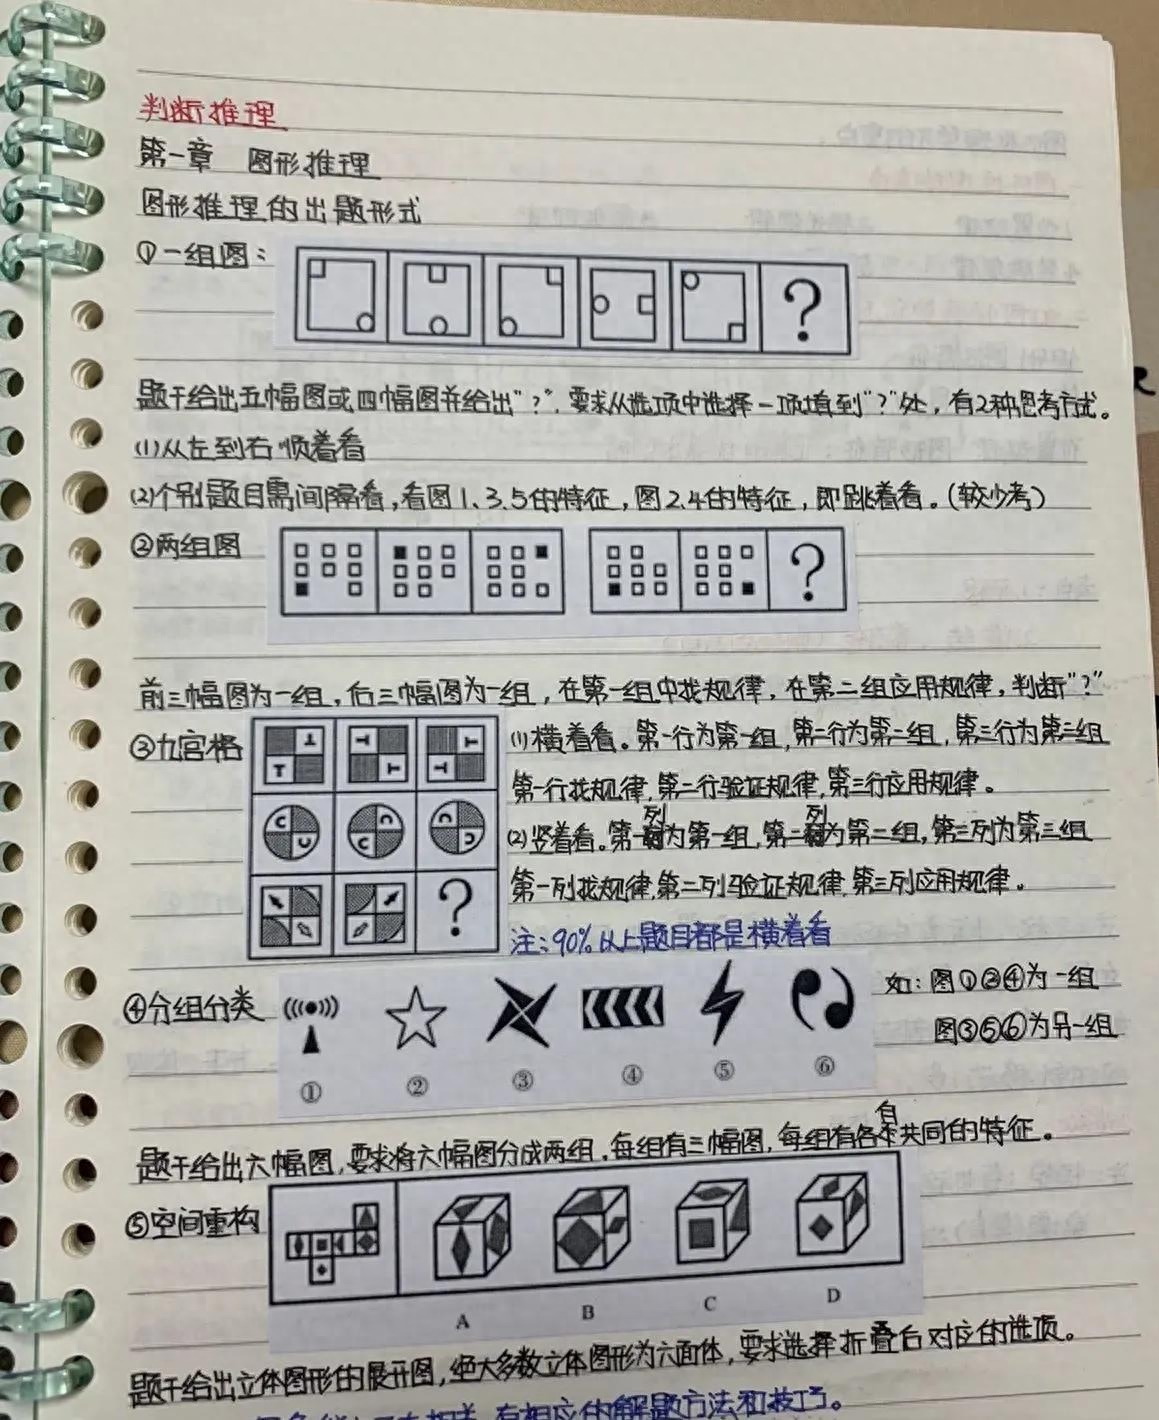 判断推理
第一章 图形推理
图形推理的出题形式
①一组图：
?
题干给出五幅图或四幅图并给出"?"，要求从选项中选择一项填到"?"处，有2种思考方式。
(1)从左到右顺着看
(2)个别题目需间隔着看，看图1、3、5的特征，图2、4的特征，即跳着看。(较少考)
②两组图
?
前三幅图为一组，后三幅图为一组，在第一组中找规律，在第二组应用规律，判断"?"
③九宫格
?
(1)横着看。第一行为第一组，第二行为第二组，第三行为第三组
第一行找规律，第二行验证规律，第三行应用规律。
(2)竖着看。第一列为第一组，第二列为第二组，第三列为第三组
第一列找规律，第二列验证规律，第三列应用规律。
注：90%以上题目都是横着看
④分组分类
① ② ③ ④ ⑤ ⑥
如：图①②④为一组
图③⑤⑥为另一组
题干给出六幅图，要求将六幅图分成两组，每组有三幅图，每组有各自共同的特征。
⑤空间重构
A B C D
题干给出立体图形的展开图，绝大多数立体图形为六面体，要求选择折叠后对应的选项。
有相应的解题方法和技巧。